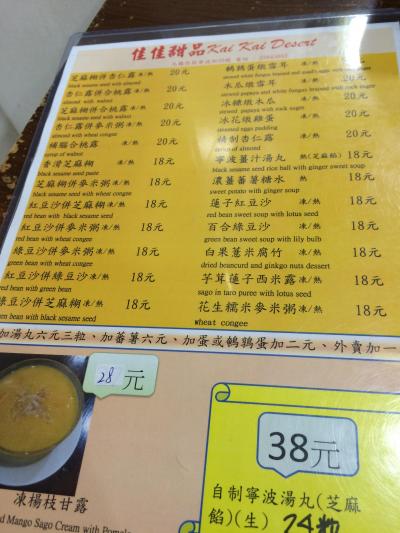 佳佳甜品 Kai Kai Dessert
芝麻糊併杏仁露 凍/熱 20元
black sesame seed with almond
杏仁露併合桃露 凍/熱 20元
almond with walnut
芝麻糊併合桃露 凍/熱 20元
black sesame seed with walnut
杏仁露併麥米粥 凍/熱 20元
almond with wheat congee
補腦合桃露 凍/熱 20元
syrup of walnut
香滑芝麻糊 凍/熱 18元
black sesame seed paste
芝麻糊併麥米粥 18元
black sesame seed with wheat congee
紅豆沙併芝麻糊 凍/熱 18元
red bean with black sesame seed
紅豆沙併麥米粥 凍/熱 18元
red bean with wheat congee
綠豆沙併麥米粥 凍/熱 18元
green bean with wheat congee
紅豆沙併綠豆沙 凍/熱 18元
red bean with green bean
綠豆沙併芝麻糊 凍/熱 18元
green bean with black sesame seed
鵪鶉蛋燉雪耳 凍/熱
木瓜燉雪耳 凍/熱 20元
冰糖燉木瓜 凍/熱 20元
stewed papaya with rock sugar
冰花燉雞蛋 凍/熱 20元
steamed eggs pudding
精制杏仁露 凍/熱 20元
syrup of almond
寧波薑汁湯丸 熱(芝麻餡) 18元
black sesame seed rice ball with ginger sweet soup
濃薑蕃薯糖水 熱 18元
sweet potato with ginger soup
蓮子紅豆沙 凍/熱 18元
red bean sweet soup with lotus seed
百合綠豆沙 凍/熱 18元
green bean sweet soup with lily bulb
白果薏米腐竹 凍/熱 18元
dried beancurd and ginkgo nuts dessert
芋茸蓮子西米露 凍/熱 18元
sago in taro puree with lotus seed
花生糯米麥米粥 凍/熱 18元
wheat congee
加湯丸六元三粒、加蕃薯六元、加蛋或鵪鶉蛋加二元、外賣加一
28元
凍楊枝甘露
Mango Sago Cream with Pomelo
38元
自制寧波湯丸(芝麻
餡)(生) 24粒